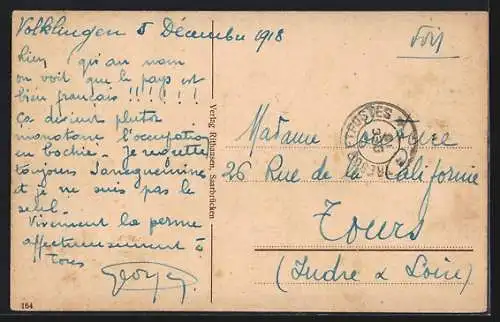 Volklingen 5 Décembre 1918
Rien qu'au nom
on voit que le pays est
bien français !!!!!!
Ça devient plutôt
monotone l'occupation
en bochie. Je regrette
toujours Sarreguemine
et je ne suis pas le
seul.
Vivement la perme
affectueusement à
tous
Georges
164
Verlag Rithausen, Saarbrücken
TRESOR ET POSTES
Madame
26 Rue de la Californie
Tours
(Indre & Loire)